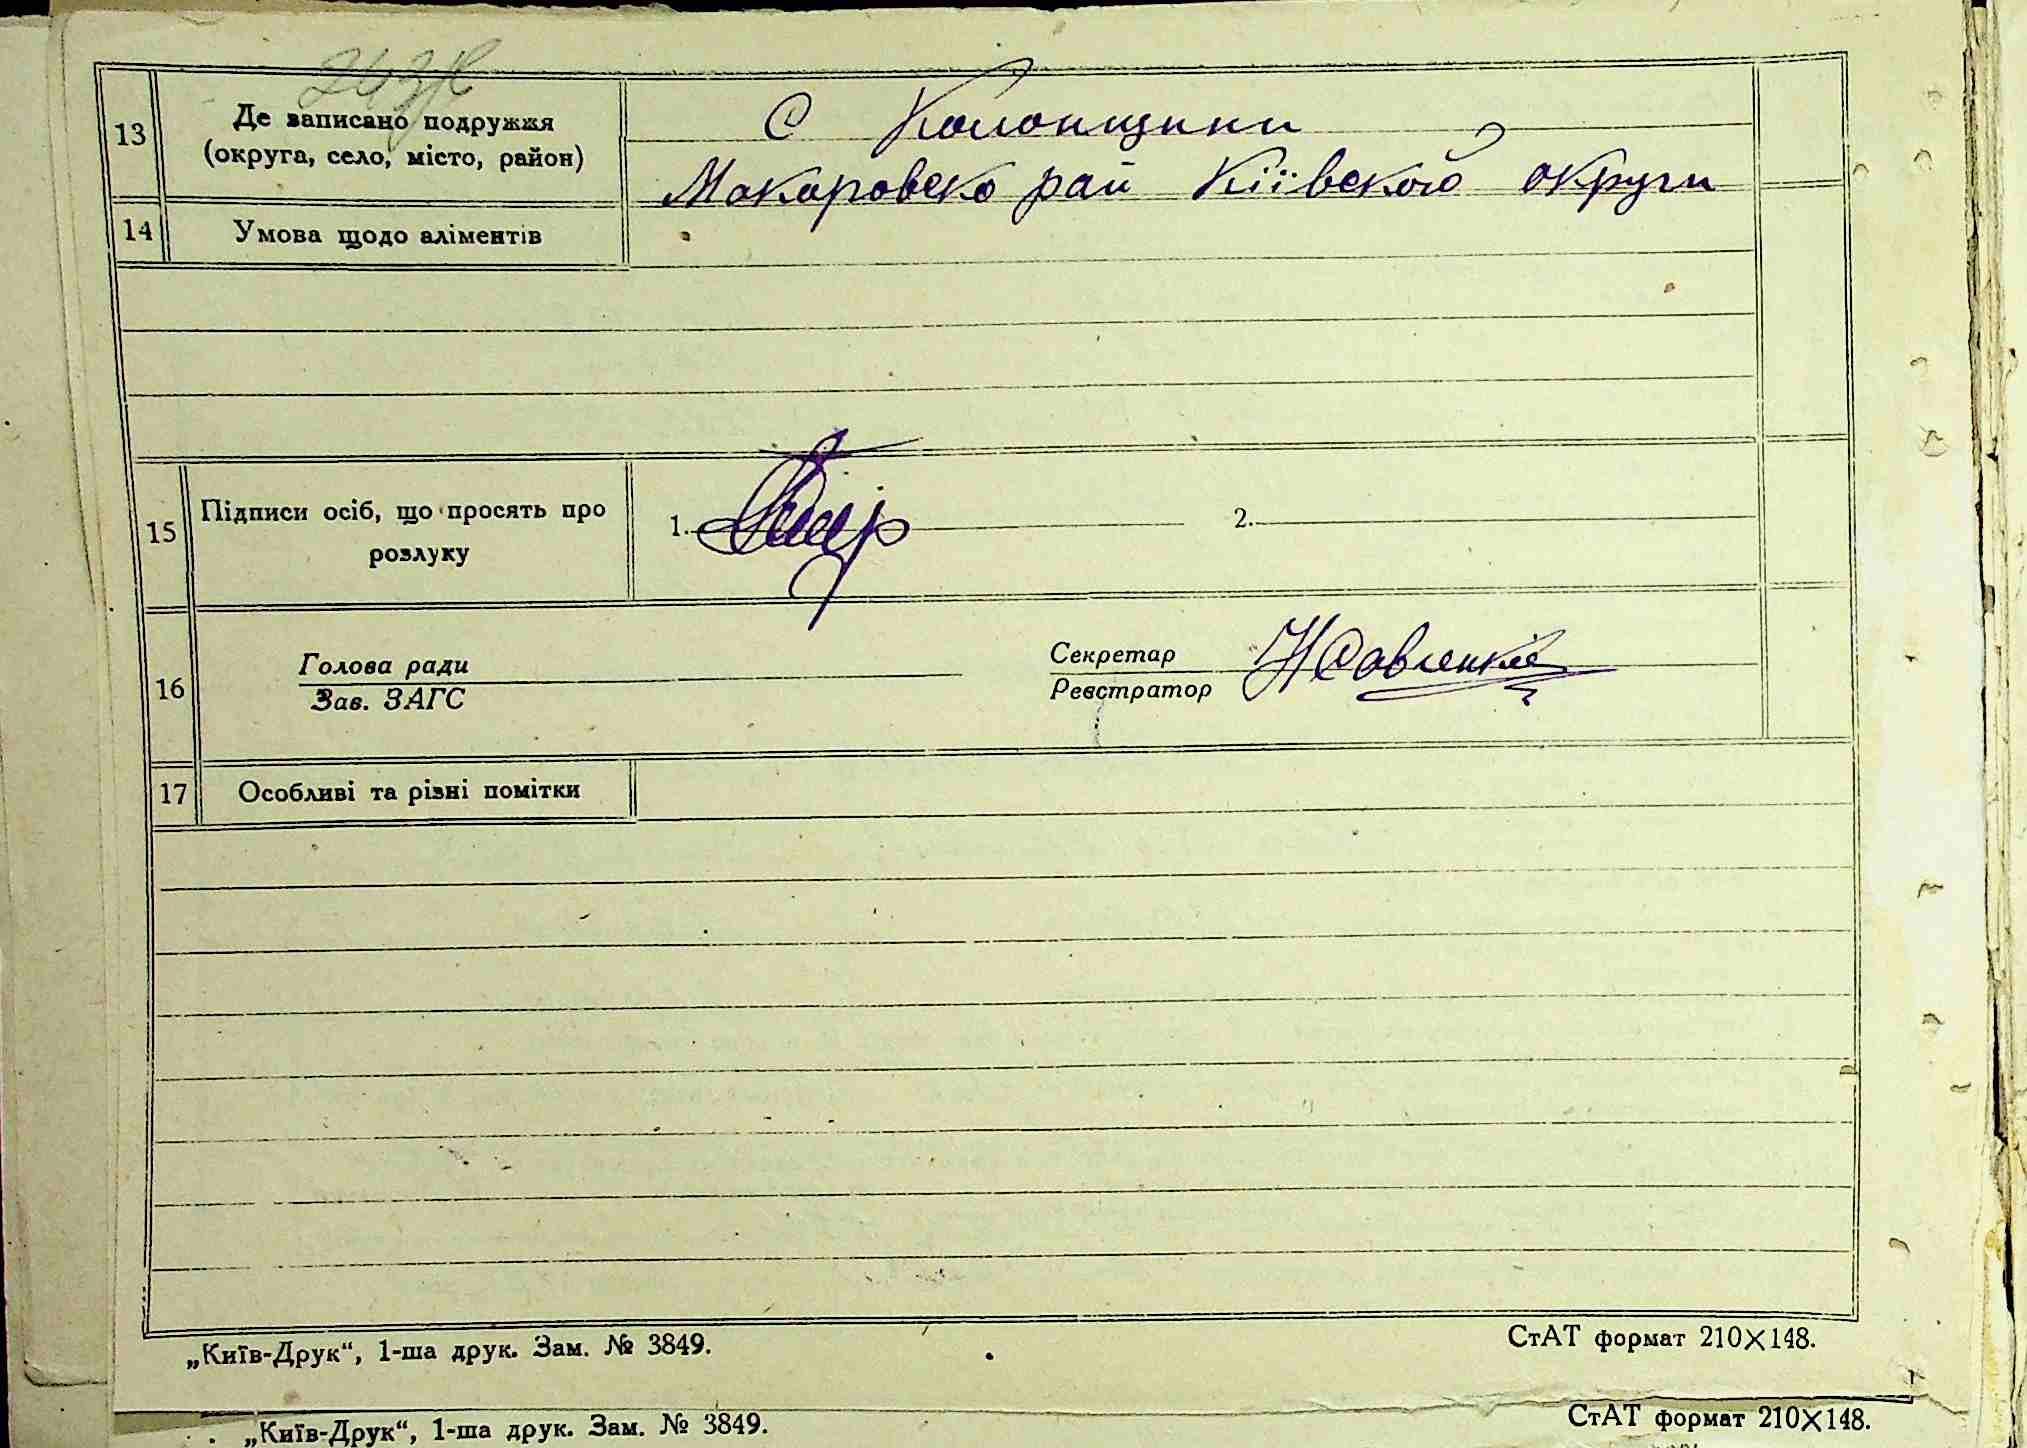 13
Де записано подружжя
(округа, село, місто, район)
С Колонщини
Макаровско рай Київскої округи
14
Умова щодо аліментів
15
Підписи осіб, що просять про
розлуку
1.
2.
16
Голова ради
Зав. ЗАГС
Секретар
Реєстратор
17
Особливі та різні помітки
„Київ-Друк“, 1-ша друк. Зам. № 3849.
СтАТ формат 210×148.
„Київ-Друк“, 1-ша друк. Зам. № 3849.
СтАТ формат 210×148.